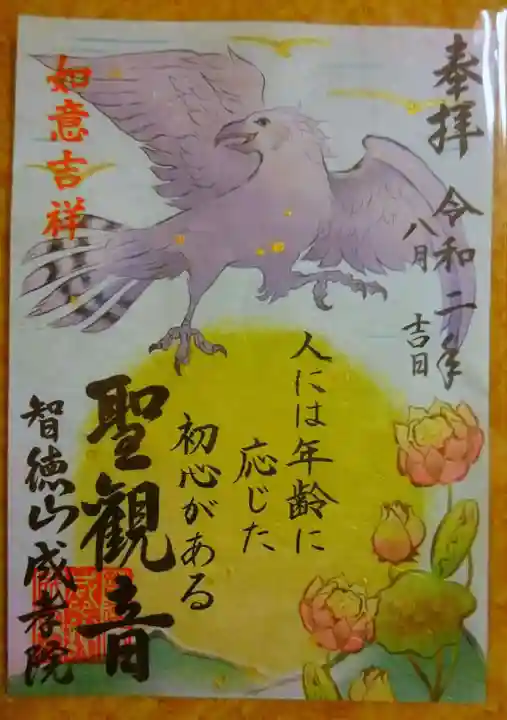 奉拝
令和二年
八月
吉日
人には年齢に
応じた
初心がある
如意吉祥
聖観音
智徳山成孝院